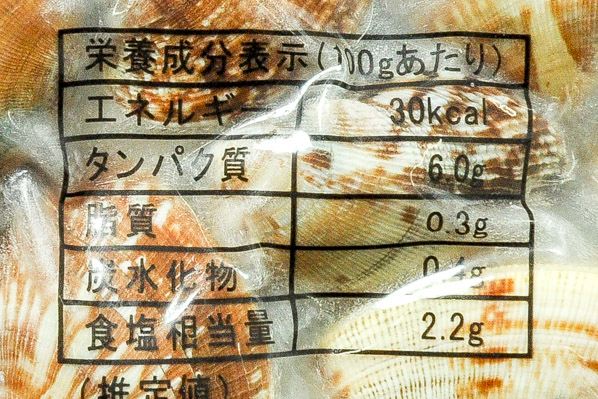 栄養成分表示(100gあたり)
エネルギー 30kcal
タンパク質 6.0g
脂質 0.3g
炭水化物 0.4g
食塩相当量 2.2g
(推定値)